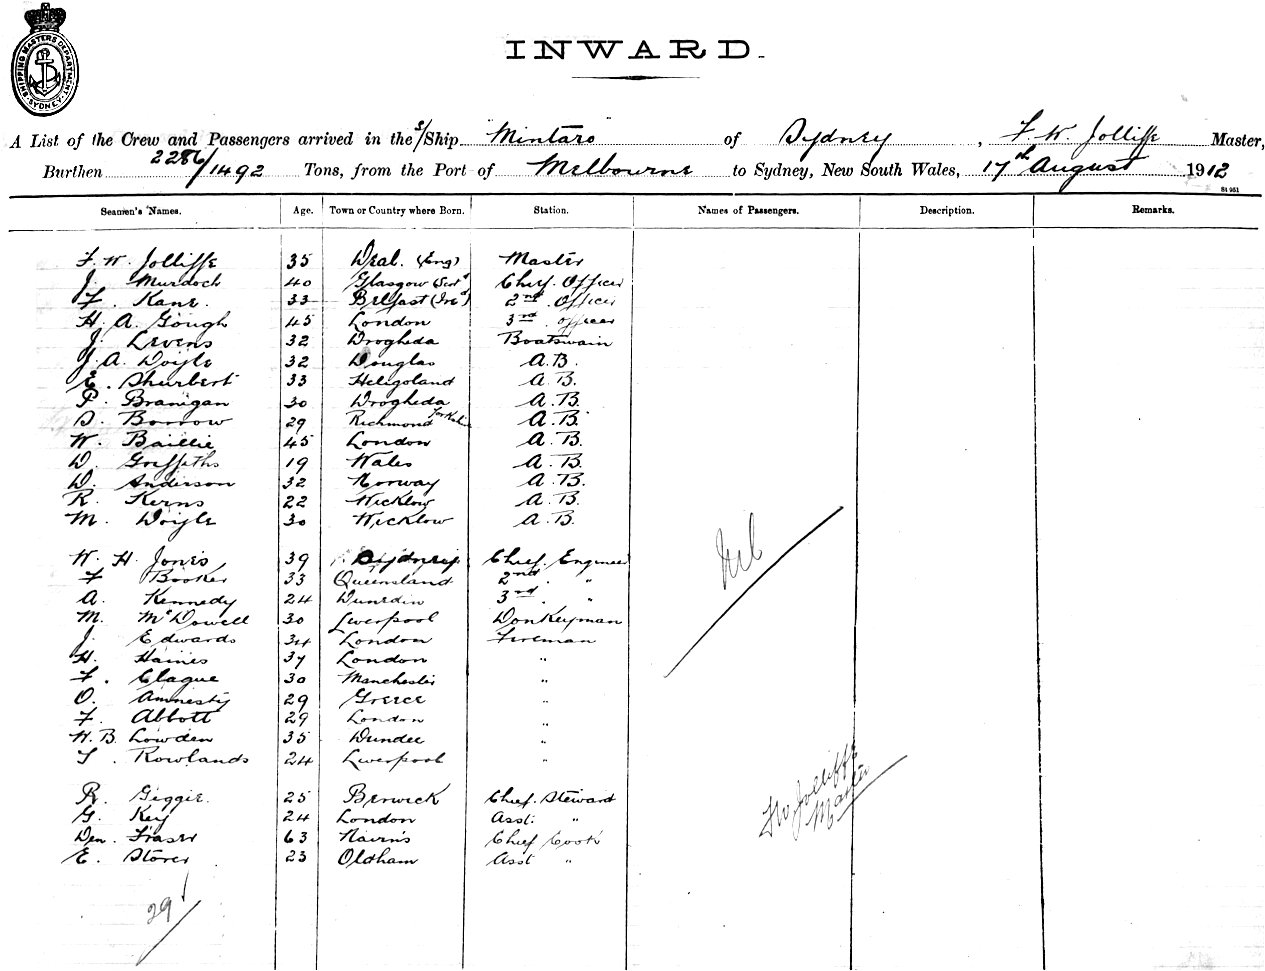 SHIPPING MASTERS DEPARTMENT SYDNEY
INWARD.
A List of the Crew and Passengers arrived in the S/Ship Mintaro of Sydney, F. W. Jolliffe Master,
Burthen 2286/1492 Tons, from the Port of Melbourne to Sydney, New South Wales, 17th August 1912
St 951
Seamen's Names. Age. Town or Country where Born. Station. Names of Passengers. Description. Remarks.
F. W. Jolliffe 35 Deal. (Eng) Master
J. Murdoch 40 Glasgow (Scotd) Chief. Officer
F. Kane. 33 Belfast (Ired) 2nd. Officer
H. A. Gough 45 London 3rd. officer
J. Levens 32 Drogheda Boatswain
J. A. Doyle 32 Douglas A.B.
E. Shurbert 33 Heligoland A.B.
P. Branigan 30 Drogheda A.B.
S. Borrow 29 Richmond A.B.
W. Baillie 45 London A.B.
D. Griffiths 19 Wales A.B.
D. Anderson 32 Norway A.B.
R. Kerns 22 Wicklow A.B.
M. Doyle 30 Wicklow A.B.
W. H. Jones 39 Sydney Chief. Engineer
F Booker 33 Queensland 2nd. "
A. Kennedy 24 Dunedin 3rd. "
M. McDowell 30 Liverpool Donkeyman
J. Edwards 34 London Fireman
H. Haines 37 London "
F. Clague 30 Manchester "
O. Amnesty 29 Greece "
F. Abbott 29 London "
W. B. Lowden 35 Dundee "
T. Rowlands 24 Liverpool "
R. Geggie. 25 Berwick Chief. Steward
G. Key 24 London Asst: "
Den. Fraser 63 Nairns Chief Cook
E. Storer 23 Oldham Asst "
29
Nil
FW Jolliffe
Master